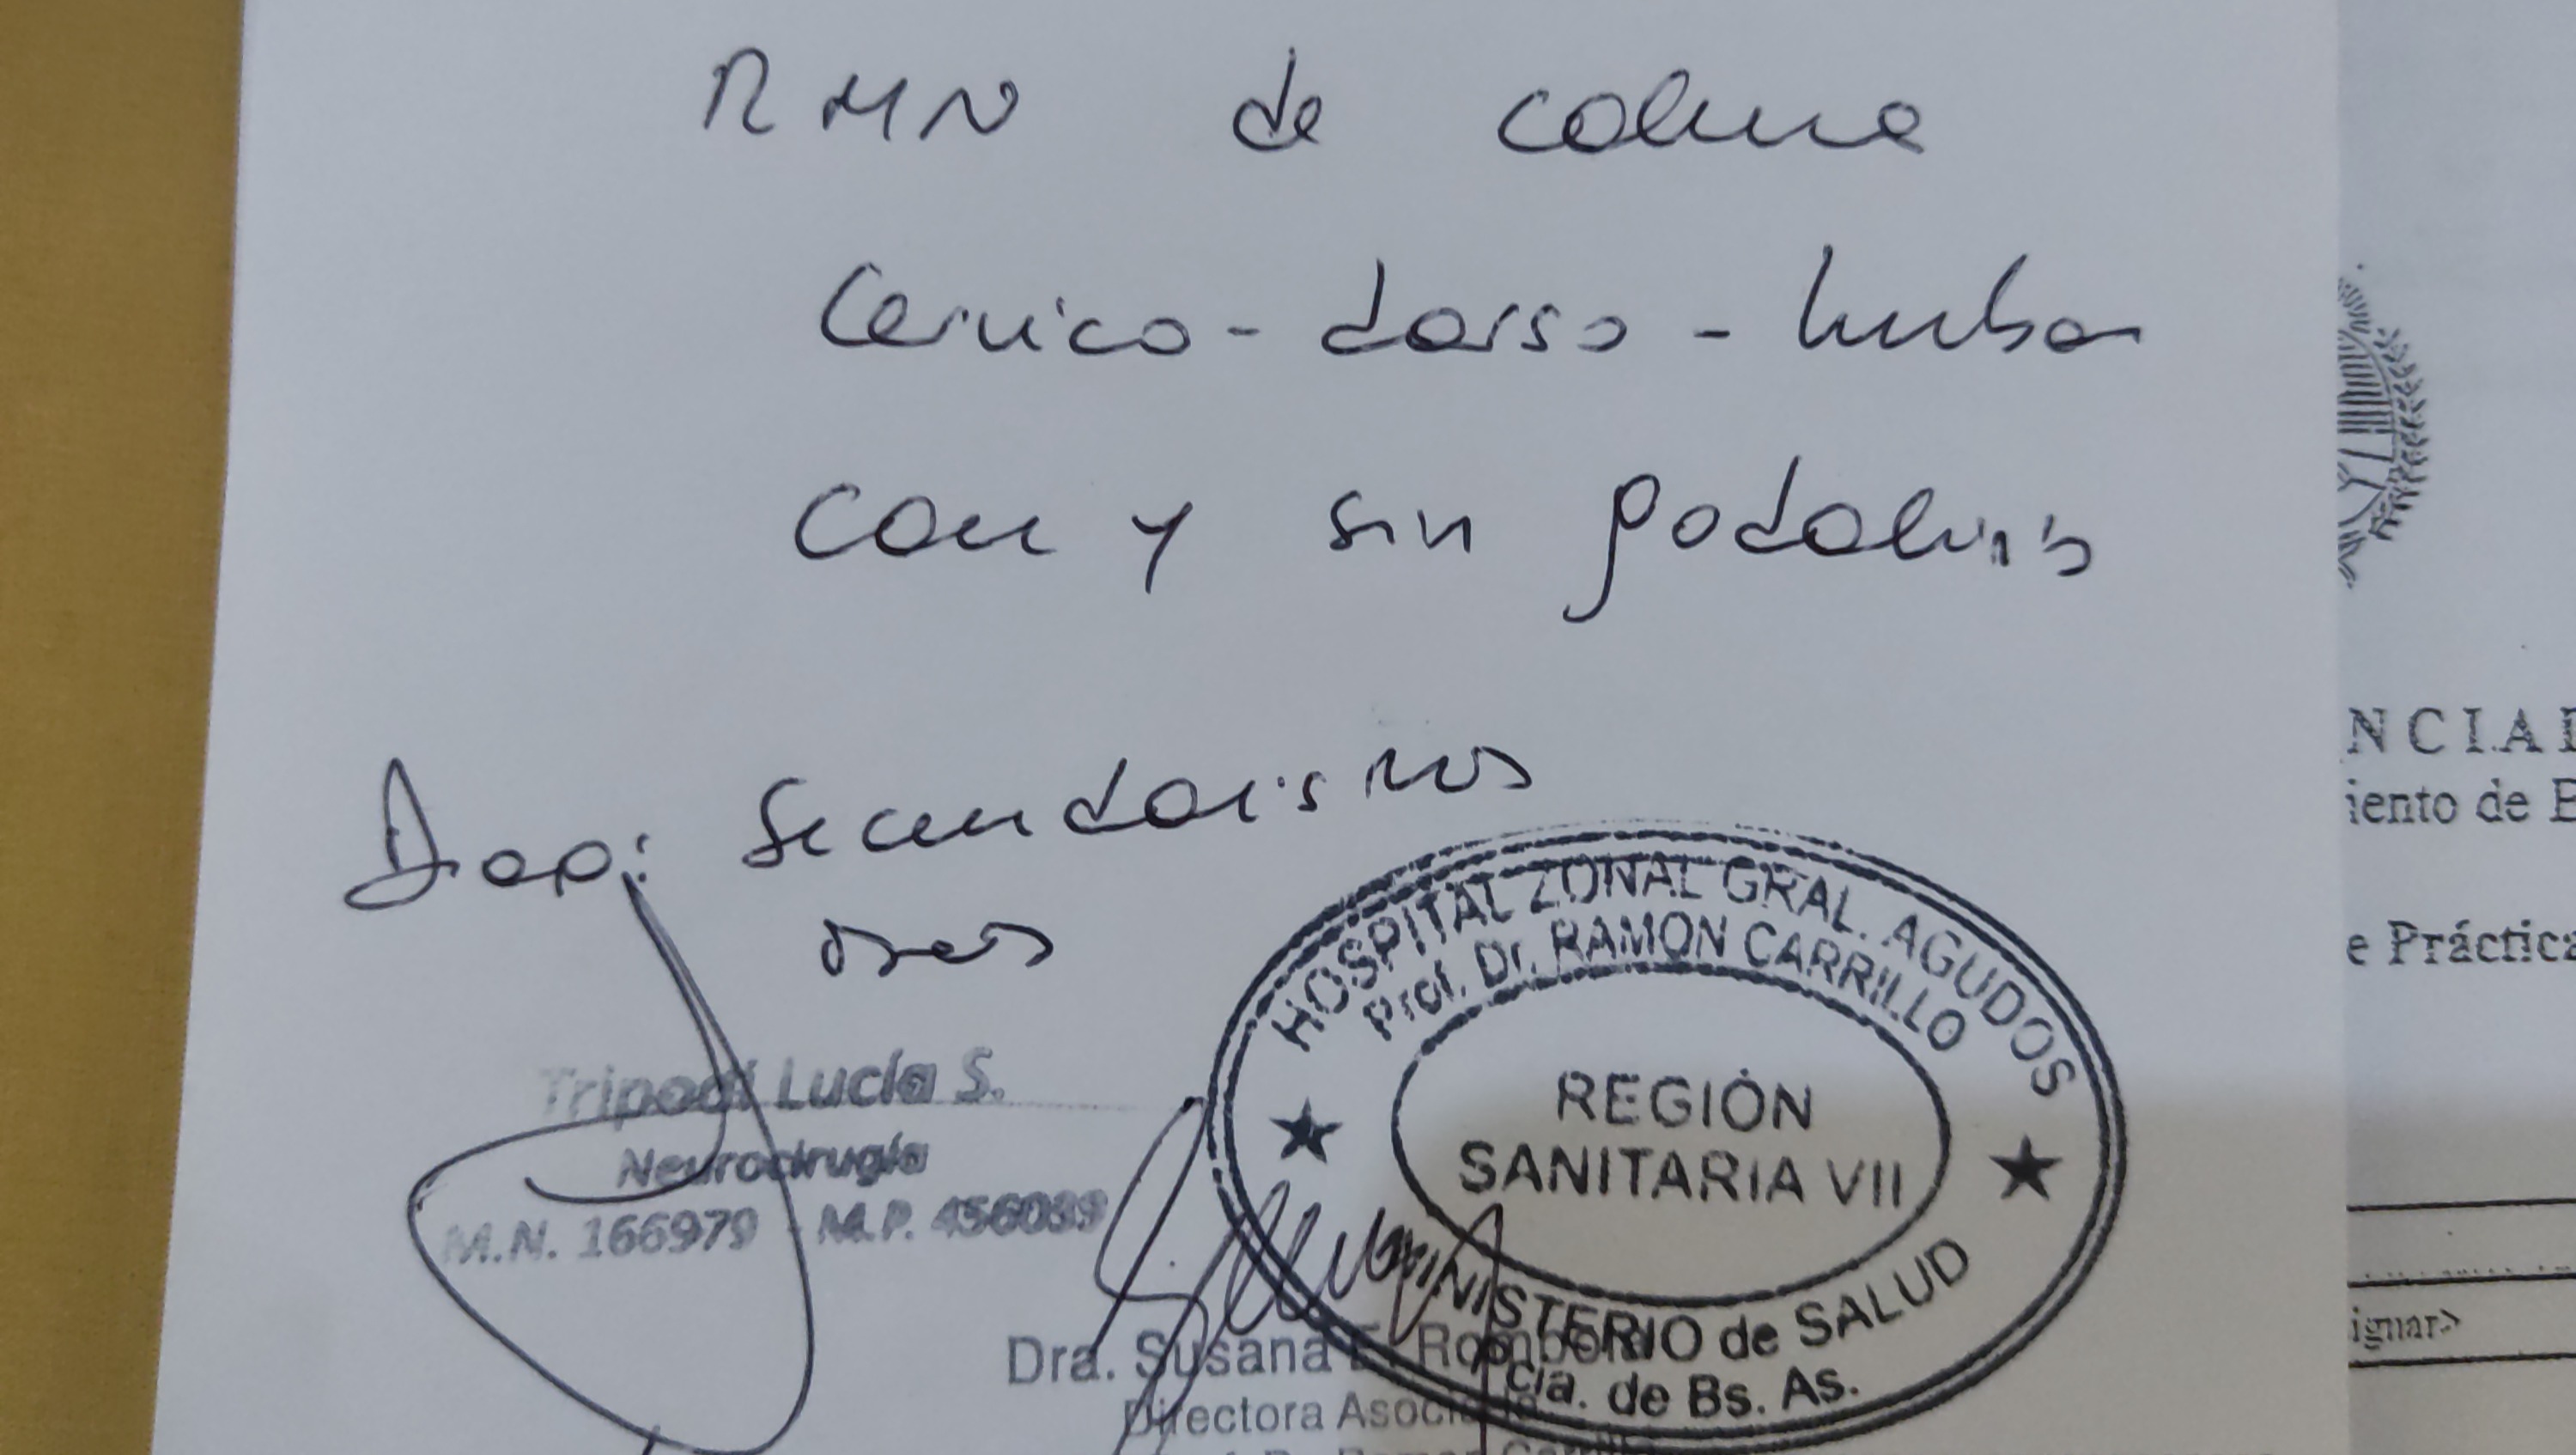 RMN de columna
Cervico - dorso - lumbar
con y sin gadolinio
Diag: Secundarismos
oseos
Tripodi Lucía S.
Neurocirugía
M.N. 166979 - M.P. 456039
HOSPITAL ZONAL GRAL. AGUDOS
Prof. Dr. RAMON CARRILLO
REGIÓN
SANITARIA VII
MINISTERIO de SALUD
Pcia. de Bs. As.
Dra. Susana E.
Directora Asociada
NCIA
iento de
e Práctica
ignar>